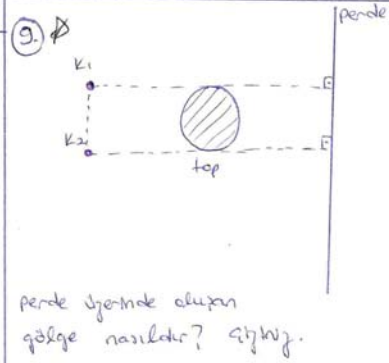 perde
9.
K1
K2
top
perde üzerinde oluşan
gölge nasıldır? Çiziniz.